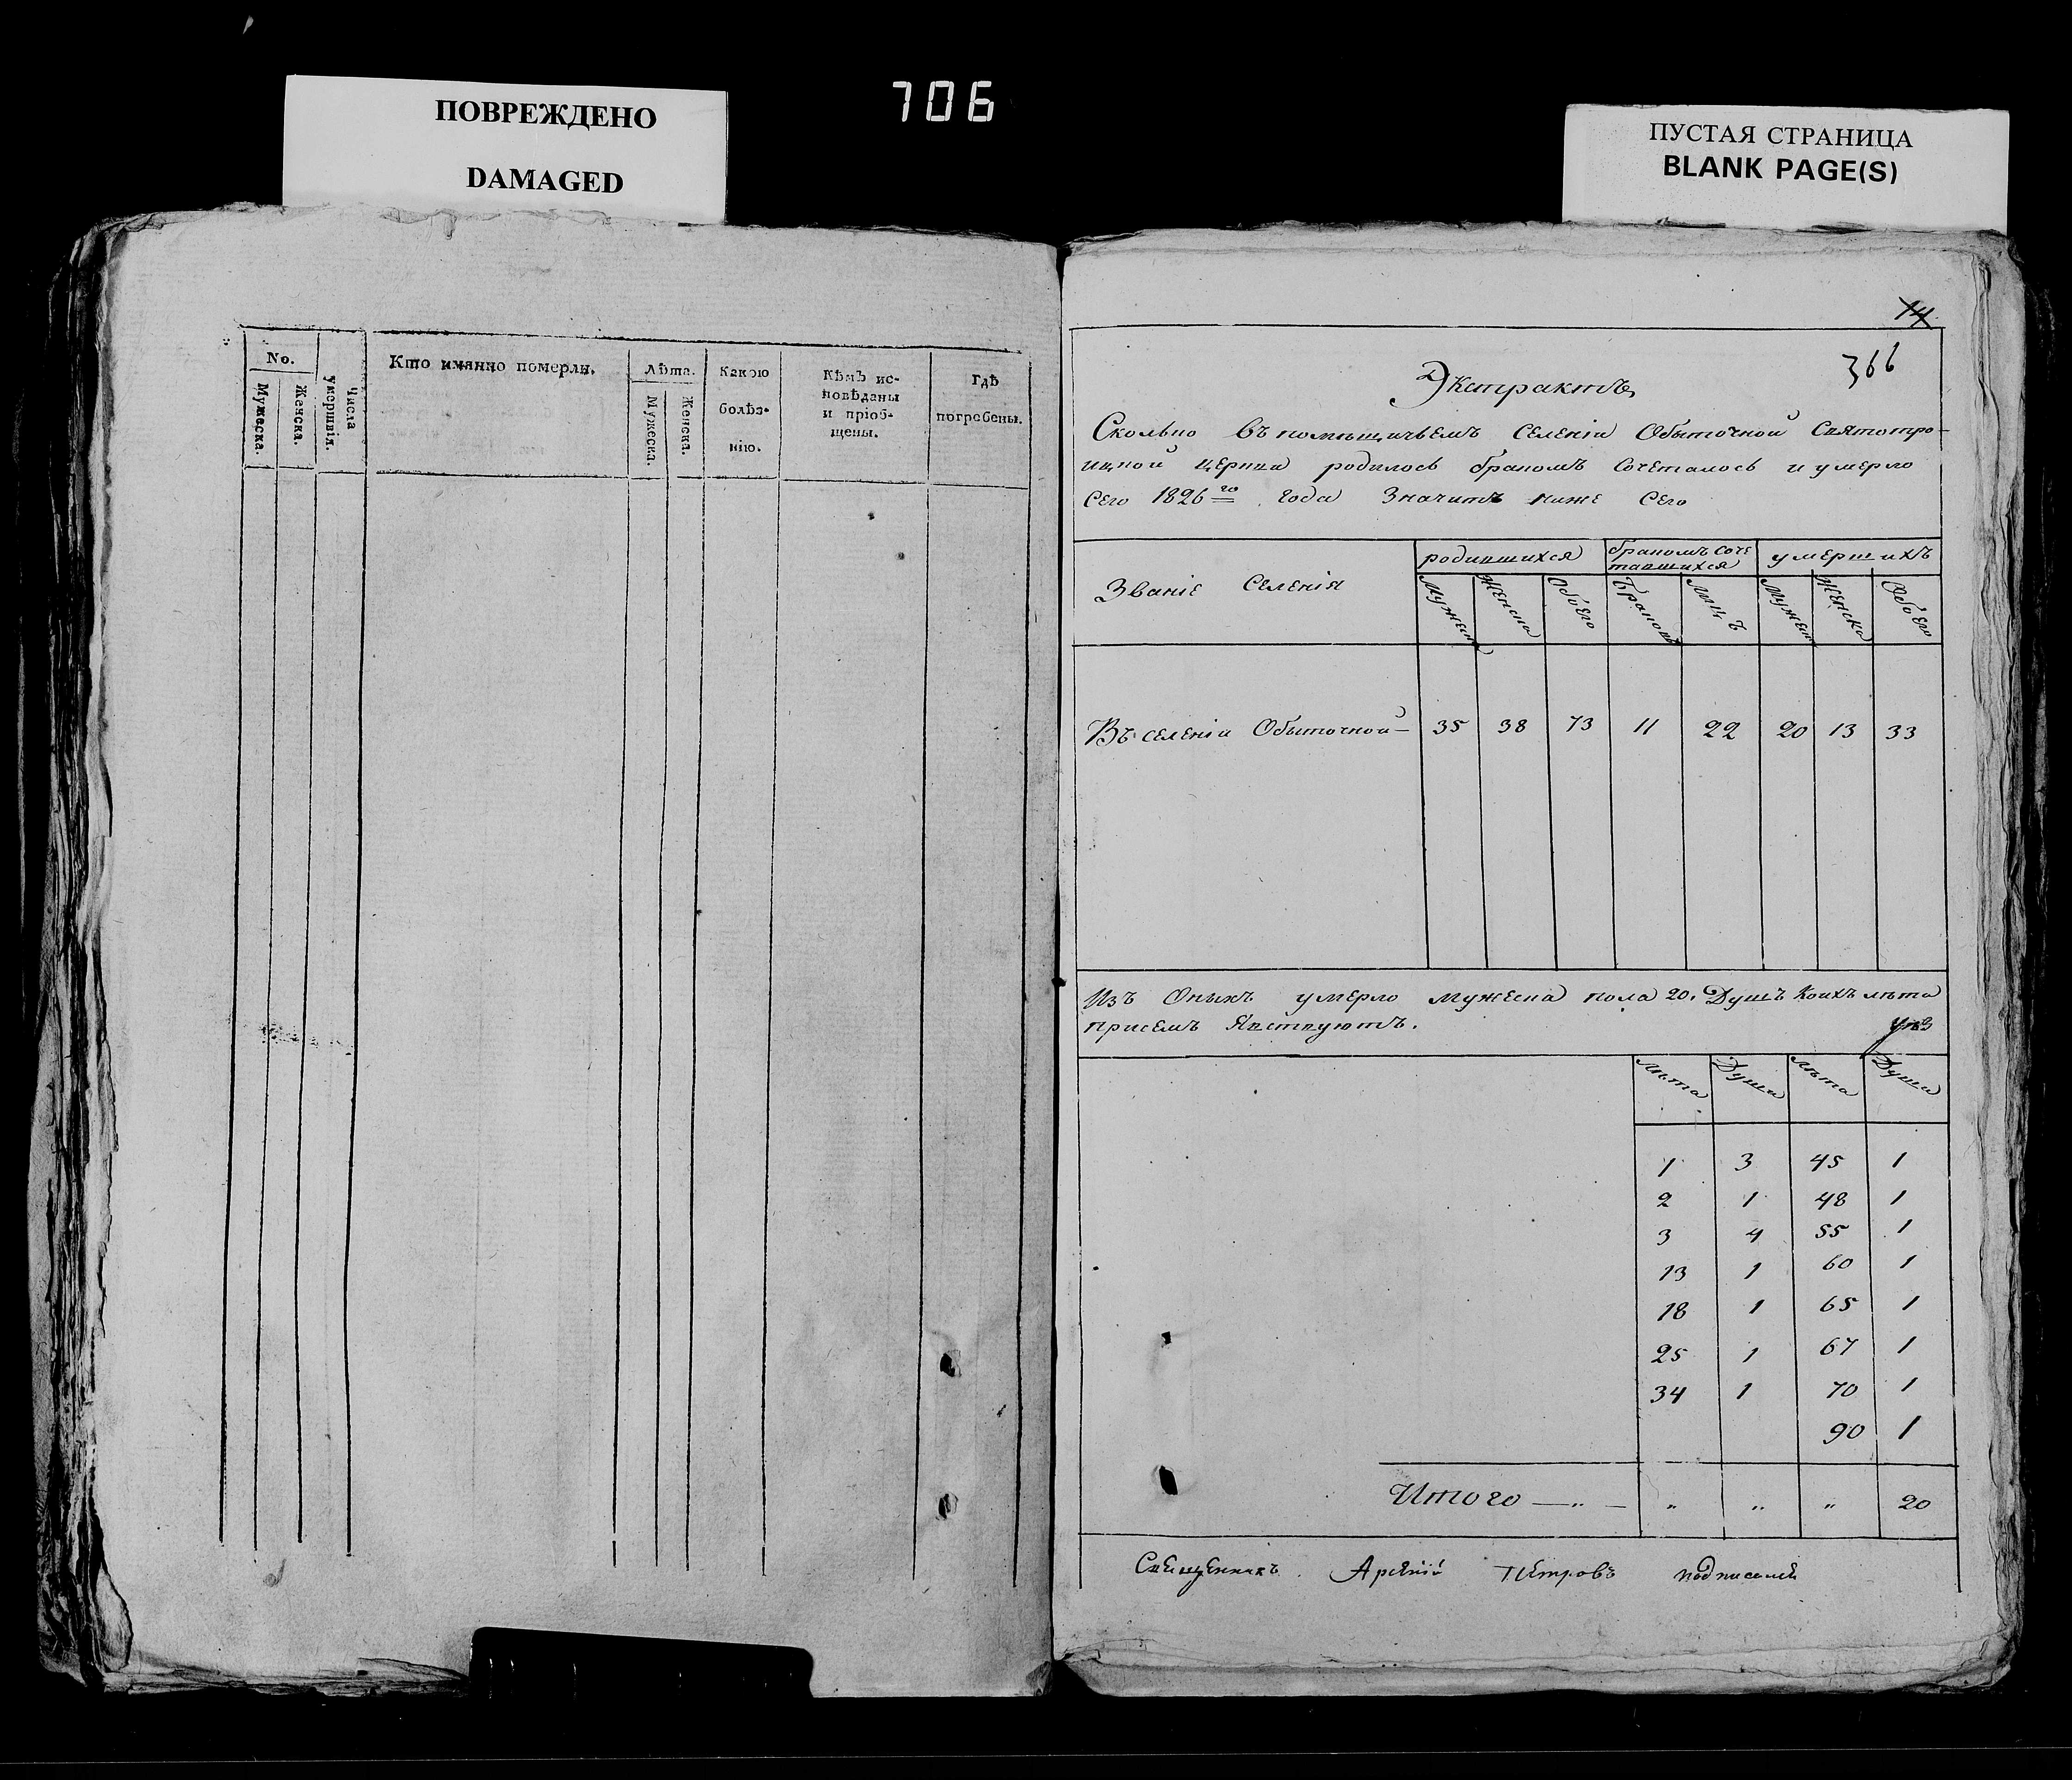 ПОВРЕЖДЕНО
DAMAGED
706
ПУСТАЯ СТРАНИЦА
BLANK PAGE(S)
No.
Мужеска.
Женска.
Числа умершвіл.
Кто имянно померли.
Лѣта.
Мужеска.
Женска.
Какою
болѣз-
нію.
Кѣмъ ис-
повѣданы
и пріоб-
щены.
Гдѣ
погребены.
14
366
Экстрактъ
Сколько въ помѣщичьемъ селеніи Обыточной Святотро-
ицкой церкви родилось бракомъ сочеталось и умерло
сего 1826го года значитъ ниже сего
Званіе Селенія
родившихся
бракомъ соче
тавшихся
умершихъ
Мужеска
Женска
Обоего
Браковъ
Лицъ
Мужеска
Женска
Обоего
Въ селеніи Обыточной — 35 38 73 11 22 20 13 33
Изъ оныхъ умерло мужеска пола 20. душъ коихъ лѣта
присемъ явствуютъ.
Лѣта Душа Лѣта Душа
1 3 45 1
2 1 48 1
3 4 55 1
13 1 60 1
18 1 65 1
25 1 67 1
34 1 70 1
90 1
Итого — „ — „ „ „ 20
Священникъ Арсеній Петровъ подписалъ